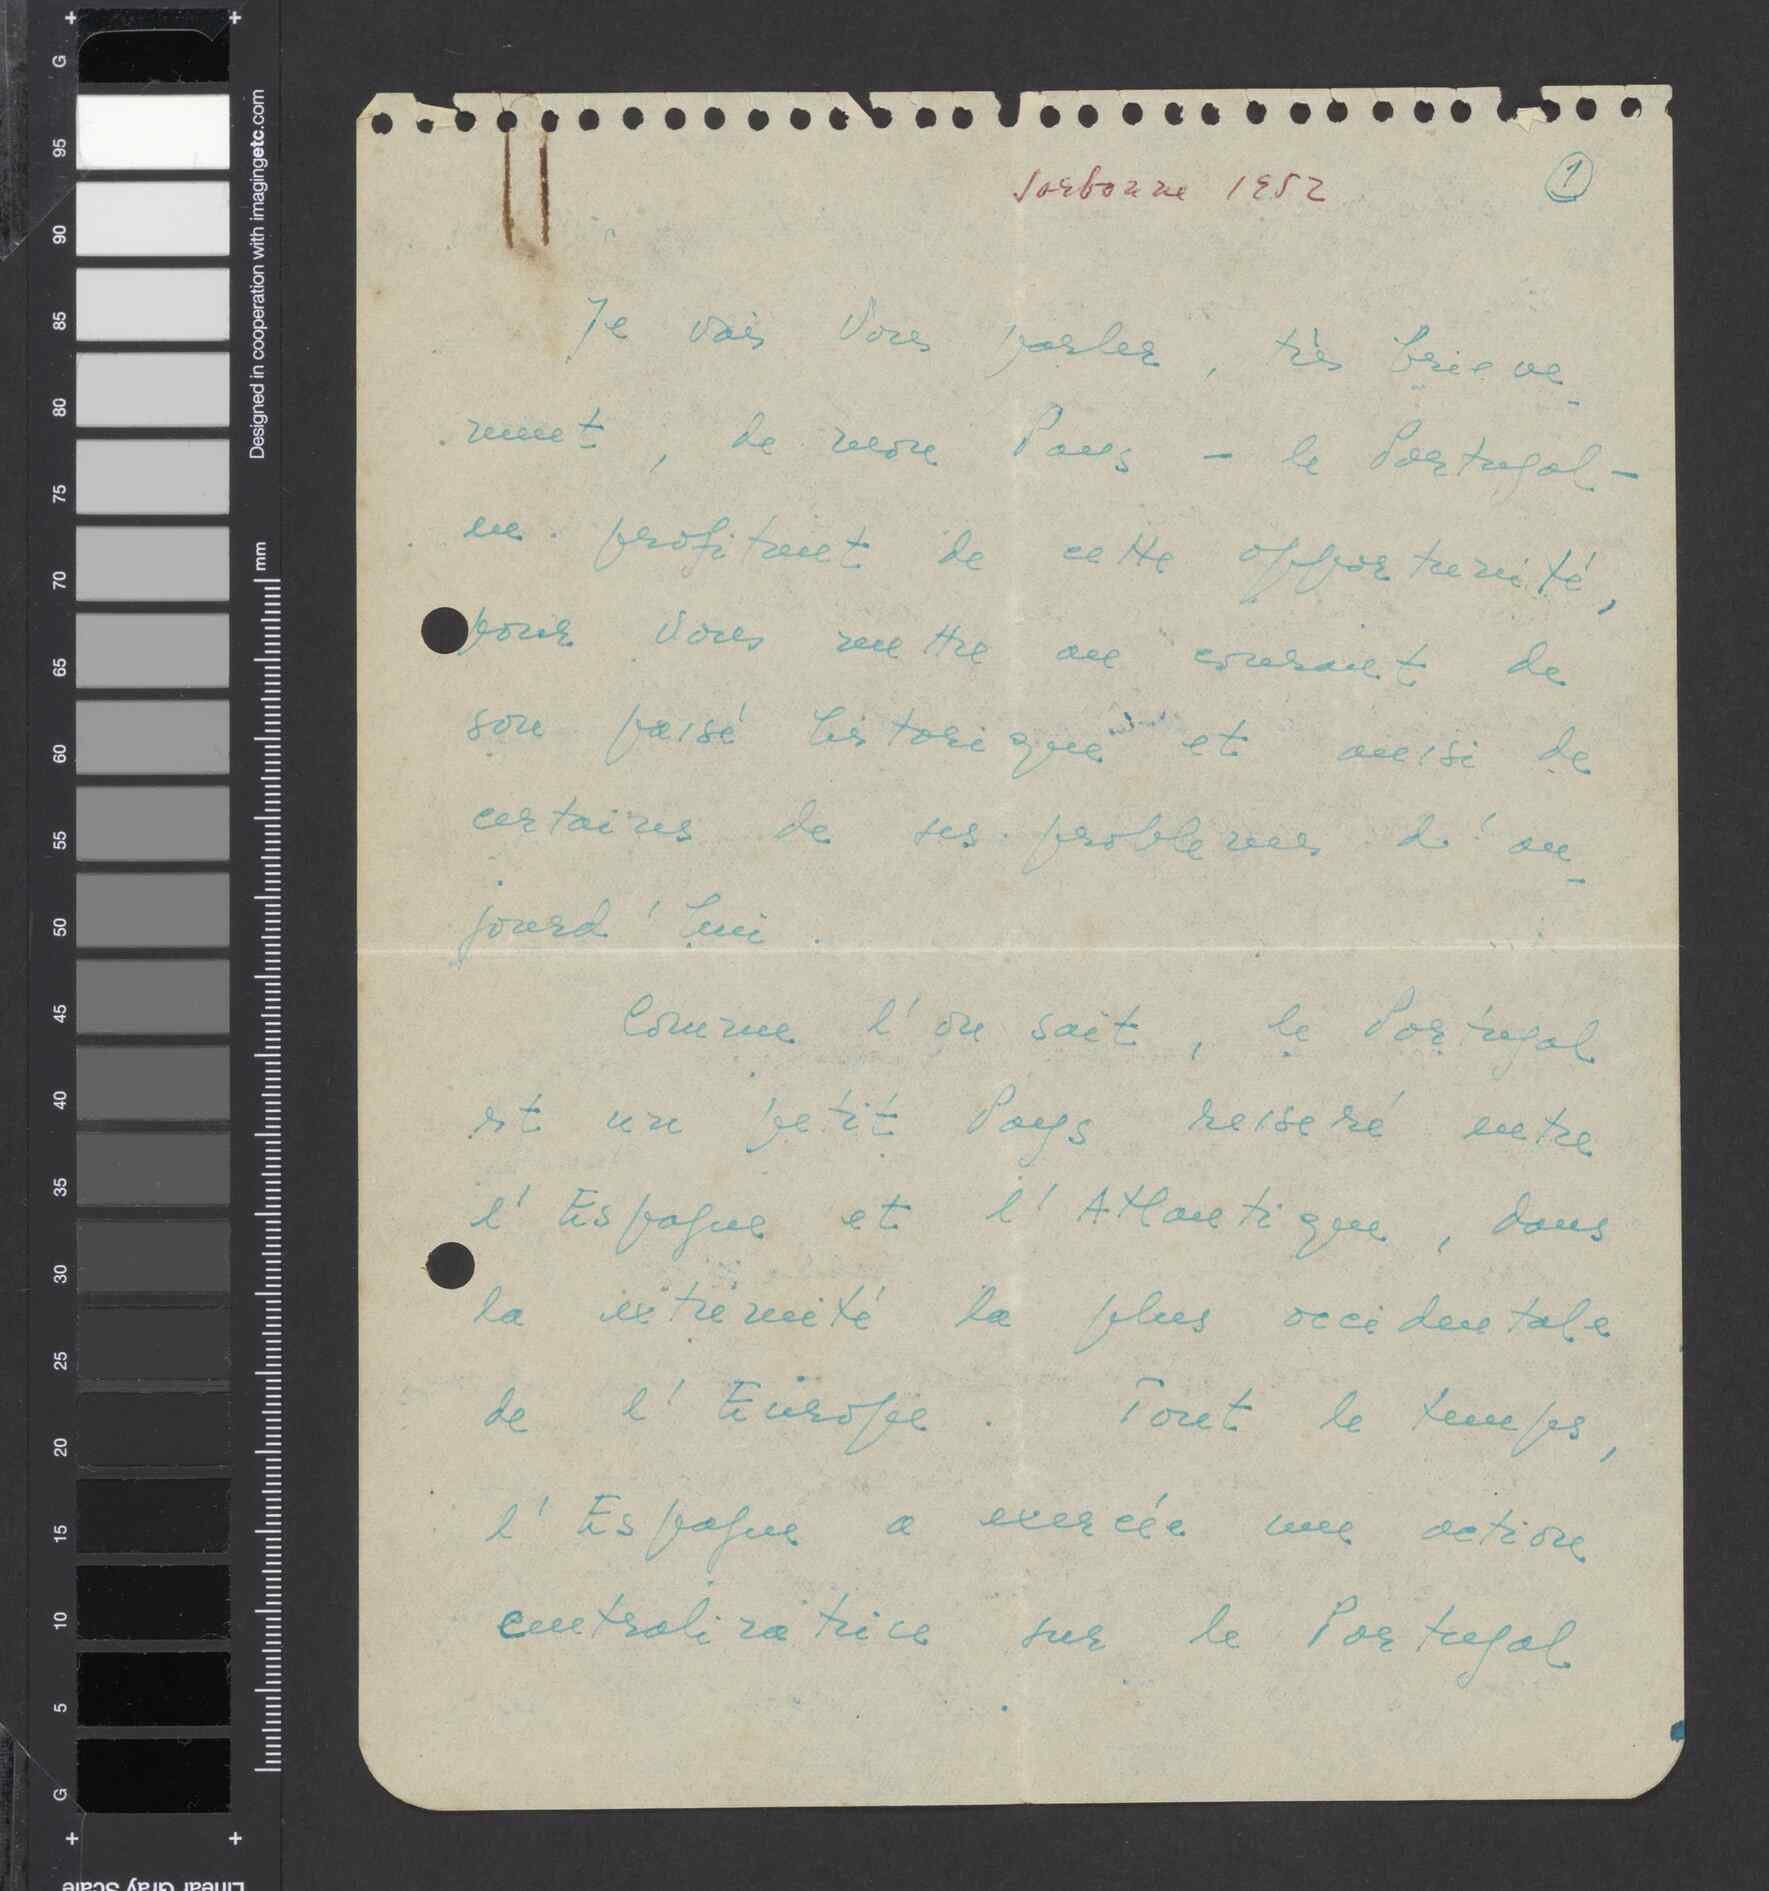 Sorbonne 1952
1
Je vais Vous parler, très brieve-
ment, de mon Pays - le Portugal -
en profitant de cette opportunité,
pour Vous mettre au courant de
son passé historique et aussi de
certaines de ses problemes d'au-
jourd'hui.
Comme l'on sait, le Portugal
est un petit Pays resserré entre
l'Espagne et l'Atlantique, dans
la extrémité la plus occidentale
de l'Europe. Tout le temps,
l'Espagne a exercée une action
centralizatrice sur le Portugal
G
95
90
85
80
75
70
65
60
55
50
45
40
35
30
25
20
15
10
5
G
Designed in cooperation with imagingetc.com
mm
Linear Gray Scale